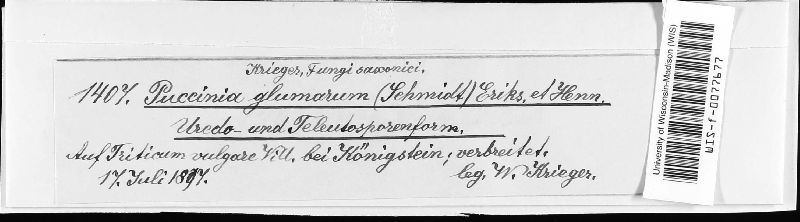 Krieger, Fungi saxonici.
1407. Puccinia glumarum (Schmidt) Eriks. et Henn.
Uredo- und Teleutosporenform.
Auf Triticum vulgare Vill. bei Königstein; verbreitet.
17. Juli 1897. leg. W. Krieger.
University of Wisconsin-Madison (WIS)
WIS-f-0077677